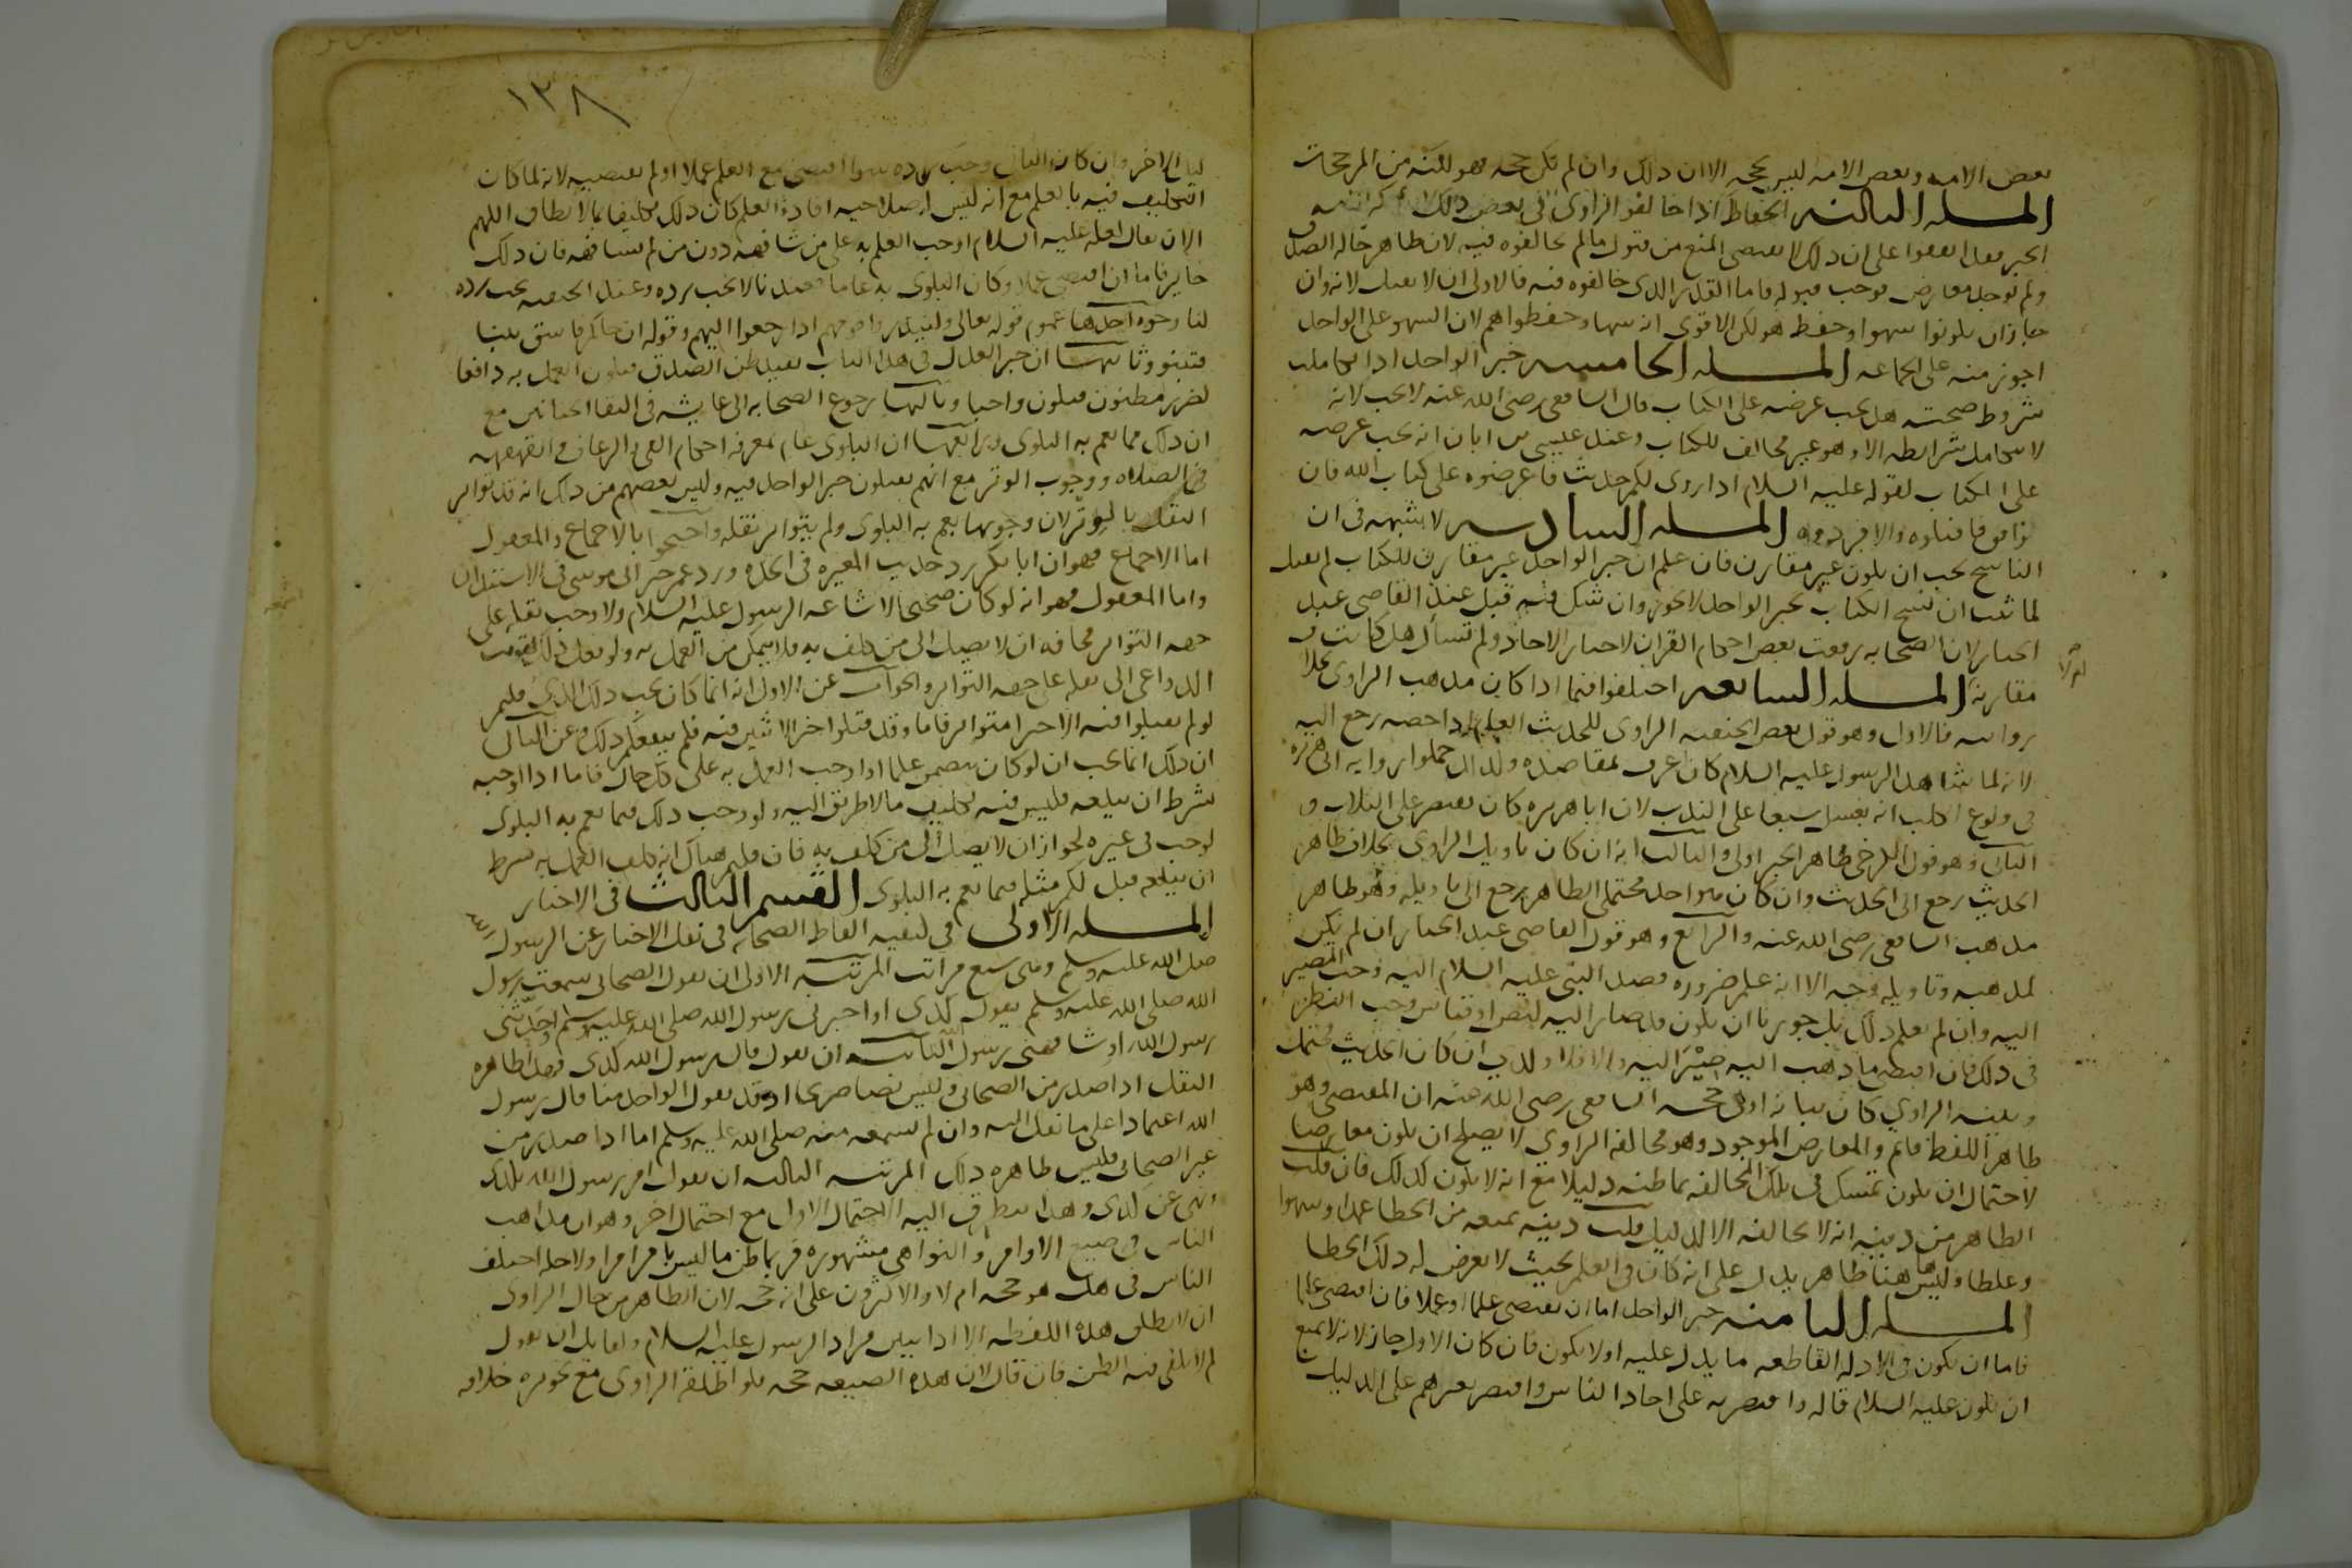 بعض الامه وبعض الامه ليس بحجه الا ان ذلك وان لم يكن حجه فهو لكنه من المرجحات
المسله الحفاظ اذا خالفوا الراوى فى بعض ذلك
الخبر فقد اتفقوا على ان ذلك لا يقتضى المنع من قبول ما لم يخالفوه فيه لان ظاهر حاله الصدق
ولم يوجد معارض فوجب قبوله فاما القدر الذى خالفوه فيه فالاولى ان لا يقبل لانه وان
جاز ان يكونوا سهوا وحفظ هو لكن الاقوى انه سها وحفظوا هم لان السهو على الواحد
اجوز منه على الجماعه المسله الخامسه خبر الواحد اذا تكاملت
شروط صحته هل يجب عرضه على الكتاب قال الشافعى رضى الله عنه لا يجب لانه
لا يتكامل شرايطه الا وهو غير مخالف للكتاب وعند عيسى بن ابان انه يجب عرضه
على الكتاب لقوله عليه السلام اذا روى لكم حديث فاعرضوه على كتاب الله فان
وافق فاقبلوه والا فردوه المسله السادسه لا شبهه فى ان
الناسخ يجب ان يكون غير مقارن فان علم ان خبر الواحد غير مقارن للكتاب لم يقبل
لما ثبت ان نسخ الكتاب بخبر الواحد لا يجوز وان شك فيه قبل عند القاضى عبد
الجبار لان الصحابه رفعت بعض احكام القران لاخبار الاحاد ولم تسأل هل كانت
مقارنة المسله السابعه اختلفوا فيما اذا كان مذهب الراوى بخلاف
روايته فالاول وهو قول بعض الحنفيه الراوى للحديث العام اذا خصه رجع اليه
لانه لما شاهد الرسول عليه السلام كان اعرف بمقاصده ولذلك حملوا روايه ابى هريره
فى ولوغ الكلب انه يغسل سبعا على الندب لان ابا هريره كان يقتصر على الثلاث و
الثانى وهو قول الكرخى ظاهر الخبر اولى والثالث انه ان كان تاويل الراوى بخلاف ظاهر
الحديث رجع الى الحديث وان كان هو احد محتملى الظاهر يرجع الى تاويله وهو ظاهر
مذهب الشافعى رضى الله عنه والرابع وهو قول القاضى عبد الجبار ان لم يكن
لمذهبه وتاويله وجه الا انه علم ضروره قصد النبى عليه السلام اليه وجب المصير
اليه وان لم يعلم ذلك بل جوزنا ان يكون قد صار اليه لنص او قياس وجب النظر
فى ذلك فان اقتضى ما ذهب اليه صير اليه والا فلا وكذلك ان كان الحديث مجملا
وبينه الراوى كان بيانه اولى حجه الشافعى رضى الله عنه ان المقتضى وهو
ظاهر اللفظ قائم والمعارض الموجود وهو مخالفه الراوى لا يصلح ان يكون معارضا
لاحتمال ان يكون تمسك فى تلك المخالفه بما ظنه دليلا مع انه لا يكون كذلك فان قلت
الظاهر من دينه انه لا يخالفه الا لدليل قلت دينه يمنعه من الخطا عمدا وسهوا
وغلطا وليس ها هنا ظاهر يدل على انه كان فى العلم بحيث لا يعرض له ذلك الخطا
المسله الثامنه خبر الواحد اما ان يقتضى علما او عملا فان اقتضى علما
فاما ان يكون فى الادله القاطعه ما يدل عليه او لا يكون فان كان الاول جاز لانه لا يمتنع
ان يكون عليه السلام قاله واقتصر به على احاد الناس واقتصر بغيرهم على الدليل
١٣٨
وان كان الثانى وجب رده سوا اقتضى مع العلم عملا او لم يقتضيه لانه لما كان
التكليف فيه بالعلم مع انه ليس له صلاحيه افادة العلم كان ذلك تكليفا بما لا يطاق اللهم
الا ان يقال لعله عليه السلام اوجب العلم به على من شافهه دون من لم يشافهه فان ذلك
جايز فاما ان اقتضى عملا وكان البلوى به عاما فعندنا لا يجب رده وعند الحنفيه يجب رده
لنا وجوه احدها عموم قوله تعالى ولينذروا قومهم اذا رجعوا اليهم وقوله ان جاكم فاسق بنبا
فتبينوا وثانيها ان خبر العدل فى هذا الباب يفيد ظن الصدق فيكون العمل به دافعا
لضرر مظنون فيكون واجبا وثالثها رجوع الصحابه الى عايشه فى التقا الختانين مع
ان ذلك مما يعم به البلوى ورابعها ان البلوى عام بمعرفه احكام القى والرعاف والقهقهه
فى الصلاه ووجوب الوتر مع انهم يقبلون خبر الواحد فيه وليس لبعضهم من ذلك انه قد تواتر
النقل بالوتر لان وجوبها يعم به البلوى ولم يتواتر نقله واحتجوا بالاجماع والمعقول
اما الاجماع فهو ان ابا بكر رد حديث المغيره فى الجده ورد عمر خبر ابى موسى فى الاستئذان
واما المعقول فهو انه لو كان صحيحا لاشاعه الرسول عليه السلام ولاوجب نقله على
جهه التواتر مخافه ان لا يصل الى من كلف به فلا يتمكن من العمل به ولو فعل ذلك لتوفرت
الدواعى الى نقله على جهه التواتر والجواب عن الاول انه انما كان يجب ذلك الذى قلتم
لو لم يقبلوا فيه الا خبرا متواترا فاما وقد قبلوا خبر الاثنين فيه فلم ينفعكم ذلك وعن الثانى
ان ذلك انما يجب ان لو كان يتضمن علما او اوجب العمل به على كل حال فاما اذا اوجبه
بشرط ان يبلغه فليس فيه تكليف ما لا طريق اليه ولو وجب ذلك فيما يعم به البلوى
لوجب فى غيره لجواز ان لا يصل الى من كلف به فان قلتم هناك انه كلف العمل به بشرط
ان يبلغه قيل لكم مثله فيما يعم به البلوى القسم الثالث فى الاخبار
المسله الاولى فى كيفيه الفاظ الصحابه فى نقل الاخبار عن الرسول
صلى الله عليه وسلم وهى سبع مراتب المرتبه الاولى ان يقول الصحابى سمعت رسول
الله صلى الله عليه وسلم يقول كذى او اخبرنى رسول الله صلى الله عليه وسلم او حدثنى
رسول الله او شافهنى رسول الله الثانيه ان يقول قال رسول الله كذى فهذا ظاهره
النقل اذا صدر من الصحابى وليس نصا صريحا اذ قد يقول الواحد منا قال رسول
الله اعتمادا على ما نقل اليه وان لم يسمعه منه صلى الله عليه وسلم اما اذا صدر من
غير الصحابى فليس ظاهره ذلك المرتبه الثالثه ان يقول امر رسول الله بكذى
ونهى عن كذى وهذا يتطرق اليه الاحتمال الاول مع احتمال اخر وهو ان مذاهب
الناس فى صيغ الاوامر والنواهى مشهوره فربما ظن ما ليس بامر امرا ولاجله اختلف
الناس فى هل هو حجه ام لا والاكثرون على انه حجه لان الظاهر من حال الراوى
ان لا يطلق هذه اللفظه الا اذا تيقن مراد الرسول عليه السلام ولقايل ان يقول
لم لا يكفى فيه الظن فان قال لان هذه الصيغه حجه فلو اطلقه الراوى مع تجويزه خلافه